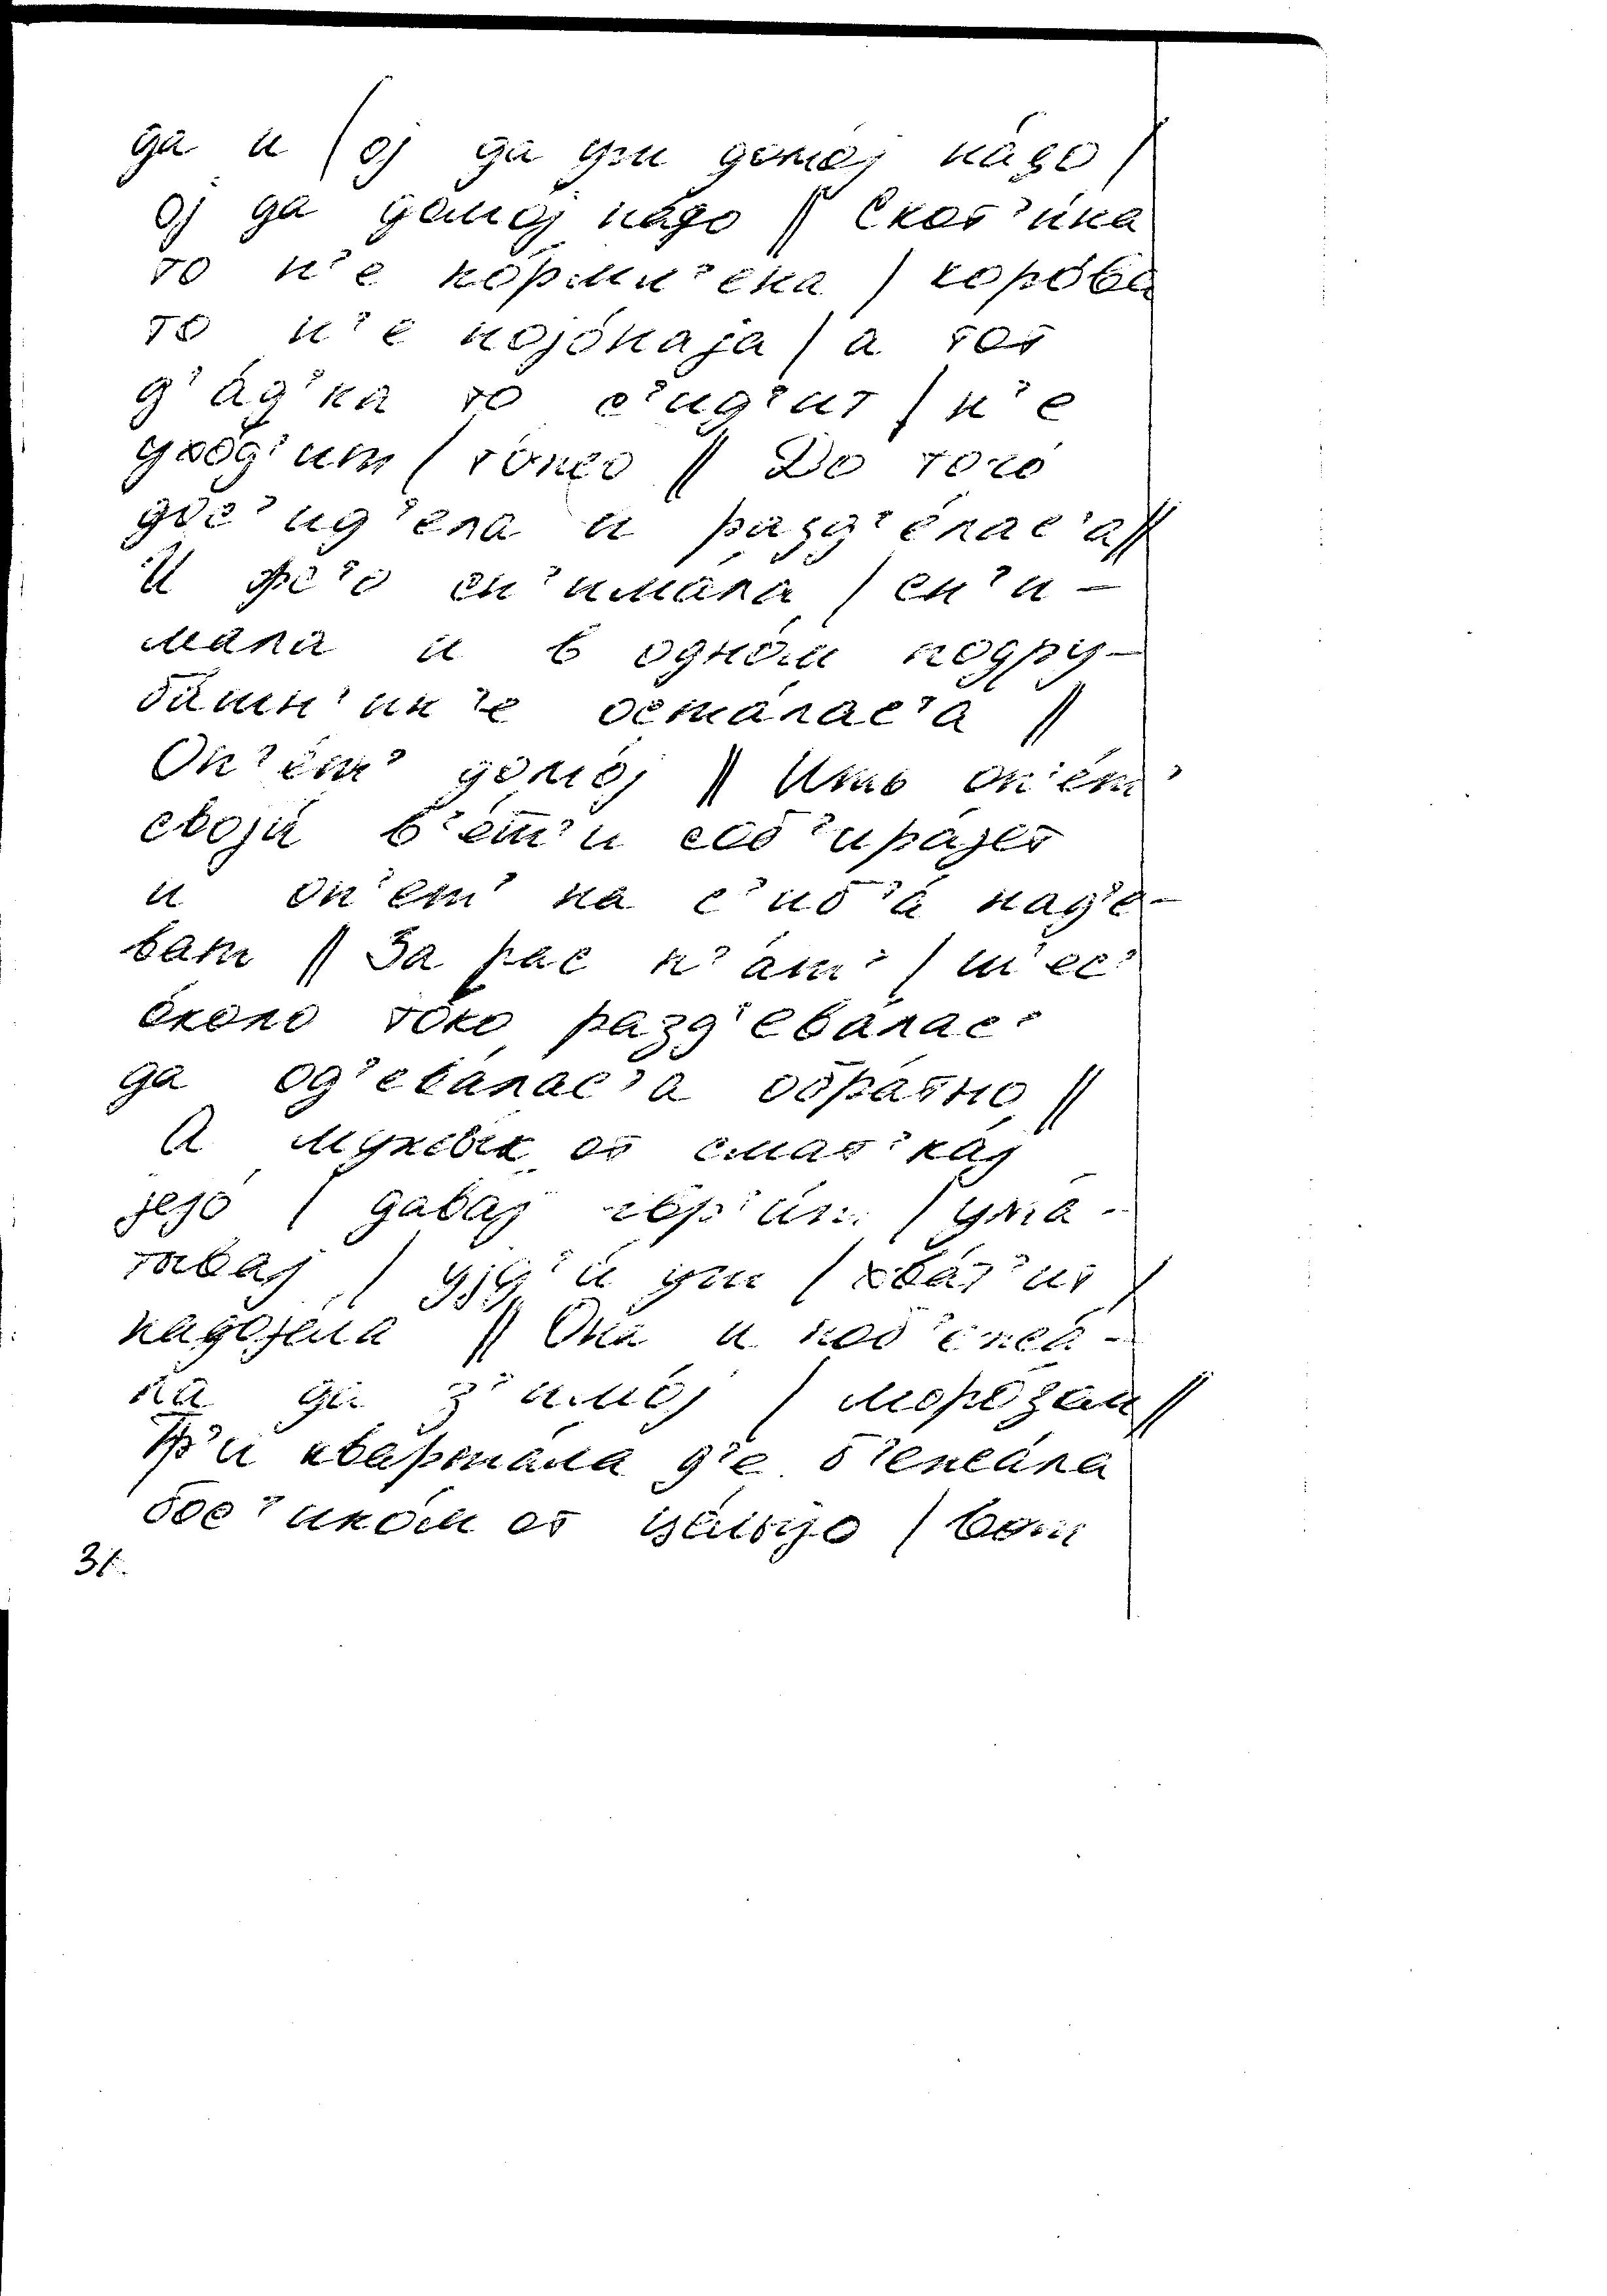 да и / оj да уш домоj на́до /
оj да домо́j на́до // Скот'и́на
то н'е ко́рмл'ена / коро́ва
то н'е поjо́наjа / а тот
д'а́д'ка то с'ид'ит / н'е
ухо́д'ит / то́лко // До того́
дос'ид'ела и разд'е́лас'а //
И фс'о сн'има́ла / сн'и-
мала и в одно́м подру-
ба́шн'ик'е оста́лас'а //
Оп'е́т' домо́j // Ить оп'е́т'
своjи́ в'е́шш'и соб'ира́jет
и оп'ет' на с'иб'а́ над'е-
ват // За рас п'а́т' / ш'ес'
около то́ко разд'ева́лас'
да од'ева́лас'а обра́тно //
А мужы́к от смат'ка́j
jejо́ / давай гвр'и́т / ума́-
тываj / уjд'и́ уш / хва́т'ит /
надоjе́ла // Она и поб'ежа́-
ла да з'имо́j / моро́зам //
Тр'и кварта́ла д'е б'ежа́ла
бос'ико́м от / вот
31.